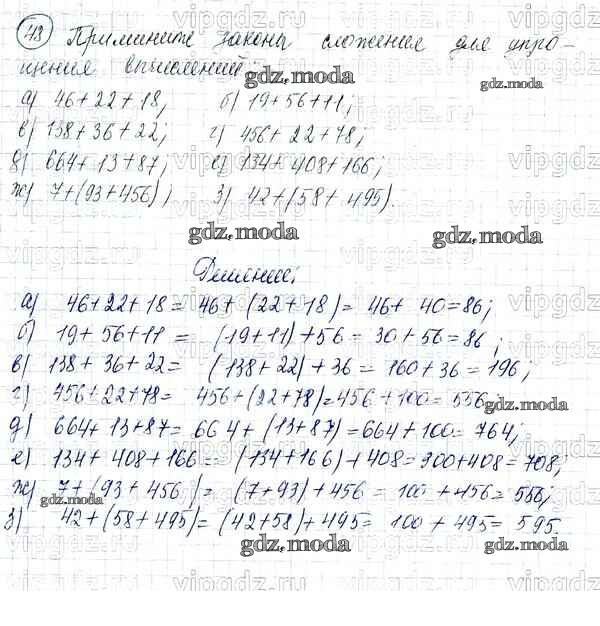 43 Примините законы сложения для упро-
щения вычислений:
а) 46+22+18; б) 19+56+11;
в) 138+36+22; г) 456+22+78;
д) 664+13+87; е) 134+408+166;
ж) 7+(93+456); з) 42+(58+495).
Решение:
а) 46+22+18= 46+(22+18)= 46+40=86;
б) 19+56+11= (19+11)+56=30+56=86;
в) 138+36+22= (138+22)+36=160+36=196;
г) 456+22+78= 456+(22+78)=456+100=556
д) 664+13+87=664+(13+87)=664+100=764;
е) 134+408+166= (134+166)+408=300+408=708;
ж) 7+(93+456)= (7+93)+456=100+456=556;
з) 42+(58+495)=(42+58)+495=100+495=595
gdz.moda
vipgdz.ru